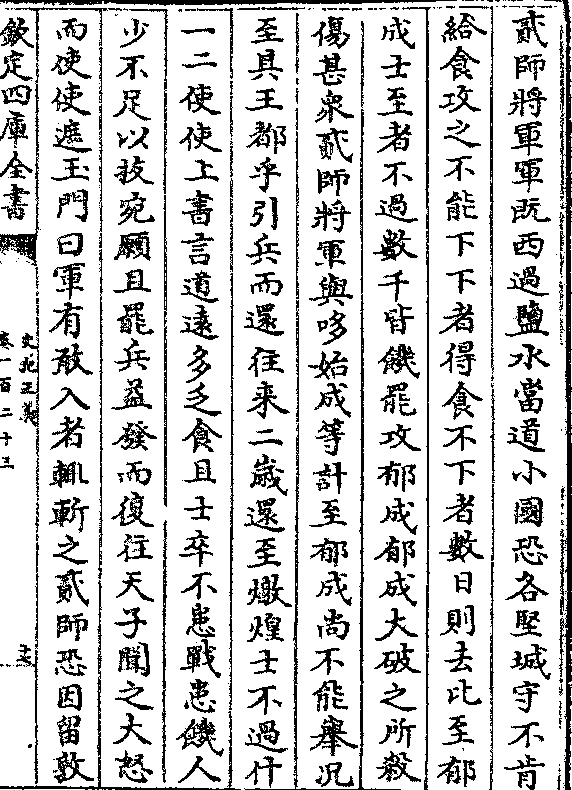 貳師將軍軍既西過鹽水當道小國恐各堅城守不肯
給食攻之不能下下者得食不下者數日則去比至郁
成士至者不過數千皆饑罷攻郁成郁成大破之所殺
傷甚衆貳師將軍與哆始成等計至郁成尚不能舉况
至其王都乎引兵而還往來二嵗還至燉煌士不過什
一二使使上書言道逺多乏食且士卒不患戰患饑人
少不足以拔宛願且罷兵益發而復往天子聞之大怒
而使使遮玉門曰軍有敢入者輒斬之貳師恐因留敦
欽定四庫全書
史記正義
卷一百二十三